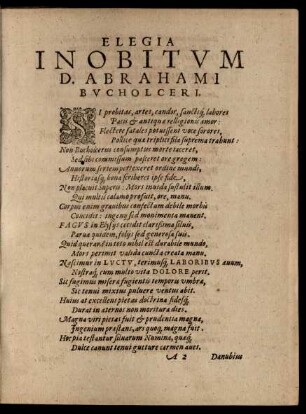 ELEGIA
IN OBITVM
D. ABRAHAMI
BVCHOLCERI.
SI probitas, artes, candor, sanctiq́; labores
Pacis & antiquæ relligionis amor:
Flectere fatales potuissent voce sorores,
Pollice quæ triplici fila suprema trahunt:
Non Bucholcerus consumptus morte iaceret,
Sed sibi commissum pasceret ore gregem:
Annorum seriem pertexeret ordine mundi,
Historiasq́; bona scriberet ipse fide.
Non placuit superis: Mors inuida sustulit illum,
Qui multis calamo profuit, ore, manu.
Corpus enim grauibus confectum debile morbis
Concidit: ingenij sed monimenta manent.
PAGVS in Elysijs cecidit clarissima siluis,
Parua quidem, felix sed generosa suis.
Quid querar? in toto nihil est durabile mundo,
Mors perimit valida cuncta creata manu.
Nascimur in LVCTV, terimusq́; LABORIBVS æuum,
Nostraq́; cum multo vita DOLORE perit.
Sic fugimus miseræ fugientis temporis vmbræ,
Sic tenui mixtus puluere ventus abit.
Huius at excellens pietas doctrina fidesq́;
Durat in æternos non moritura dies.
Magna viri pietas fuit & prudentia magna,
Ingenium præstans, ars quoq́; magna fuit.
Hoc pia testantur siluarum Numina, quæq́;
Dulce canunt tenui gutture carmen aues.
A 2 Danubius